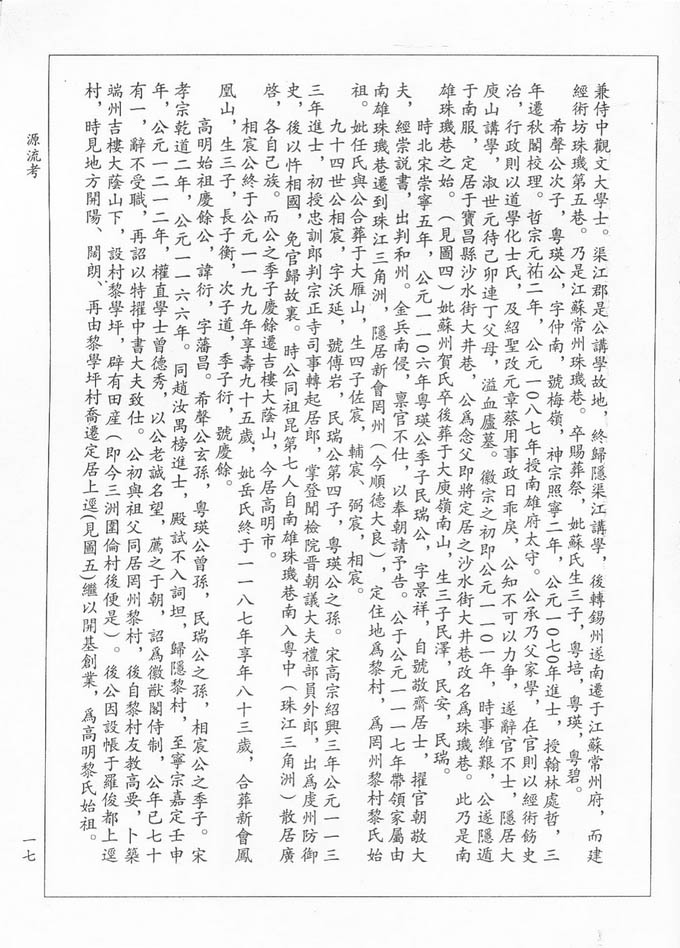 兼侍中觀文大學士。渠江郡是公講學故地，終歸隱渠江講學，後轉錫州遂南遷于江蘇常州府，而建
經術坊珠璣第五巷。乃是江蘇常州珠璣巷。卒賜葬祭，妣蘇氏生三子，粵培，粵瑛，粵碧。
希聲公次子，粵瑛公，字仲南，號梅嶺，神宗照寧二年，公元一0七0年進士，授翰林處哲，三
年遷秋閣校理。哲宗元祐二年，公元一0八七年授南雄府太守。公承乃父家學，在官則以經術飭史
治，行政則以道學化士民，及紹聖改元章蔡用事政日乖戾，公知不可以力争，遂辭官不士，隱居大
庾山講學，淑世元待己卯連丁父母，溢血廬墓。徽宗之初即公元一一0一年，時事維艱，公遂隱遁
于南服，定居于寶昌縣沙水街大井巷，公爲念父即將定居之沙水街大井巷改名爲珠璣巷。此乃是南
雄珠璣巷之始。（見圖四）妣蘇州賀氏卒後葬于大庾嶺南山，生三子民澤，民安，民瑞。
時北宋崇寧五年，公元一一0六年粵瑛公季子民瑞公，字景祥，自號敬齋居士，擢官朝敬大
夫，經崇説書，出判和州。金兵南侵，禀官不仕，以奉朝請予告。公于公元一一一七年帶領家屬由
南雄珠璣巷遷到珠江三角洲，隱居新會岡州（今順德大良），定住地爲黎村，爲岡州黎村黎氏始
祖。妣任氏與公合葬于大雁山，生四子佐宸，輔宸，弼宸，相宸。
九十四世公相宸，字沃延，號傅岩，民瑞公第四子，粵瑛公之孫。宋高宗紹興三年公元一一三
三年進士，初授忠訓郎判宗正寺司事轉起居郎，掌登聞檢院晋朝議大夫禮部員外郎，出爲虔州防御
史，後以忤相國，免官歸故裏。時公同祖昆第七人自南雄珠璣巷南入粵中（珠江三角洲）散居廣
啓，各自己族。而公之季子慶餘遷吉樓大蔭山，今居高明市。
相宸公終于公元一一九九年享壽九十五歲，妣岳氏終于一一八七年享年八十三歲，合葬新會鳳
凰山，生三子，長子衡，次子道，季子衍，號慶餘。
高明始祖慶餘公，諱衍，字藩昌。希聲公玄孫，粵瑛公曾孫，民瑞公之孫，相宸公之季子。宋
孝宗乾道二年，公元一一六六年。同趙汝禺榜進士，殿試不入詞坦，歸隱黎村，至寧宗嘉定壬申
年，公元一二一二年，權直學士曾德秀，以公老誠名望，薦之于朝，詔爲徽猷閣侍制，公年已七十
有一，辭不受職，再詔以特擢中書大夫致仕。公初與祖父同居岡州黎村，後自黎村友教高要，卜築
端州吉樓大蔭山下，設村黎學坪，辟有田産（即今三洲圍倫村後便是）。後公因設帳于羅俊都上逕
村，時見地方開陽、闊朗、再由黎學坪村喬遷定居上逕(見圖五)繼以開基創業，爲高明黎氏始祖。
源流考
一七